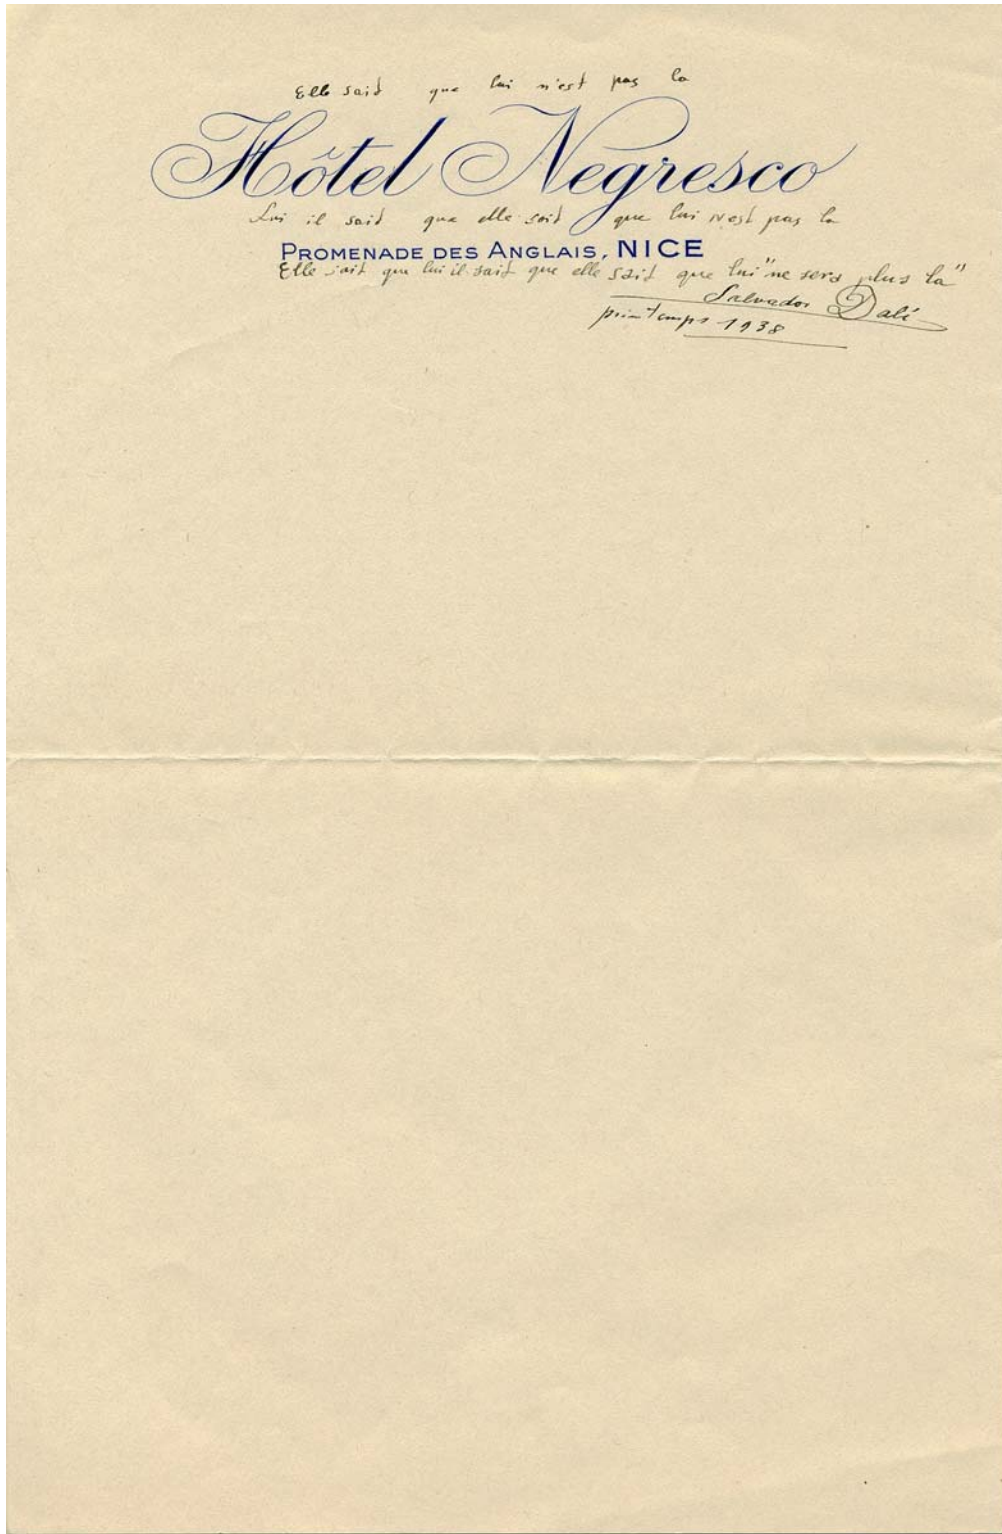 Elle said que lui n'est pas la
Hôtel Negresco
Lui il said que elle said que lui n'est pas la
PROMENADE DES ANGLAIS, NICE
Elle sait que lui il sait que elle said que lui "ne sera plus la"
Salvador Dalí
printemps 1938